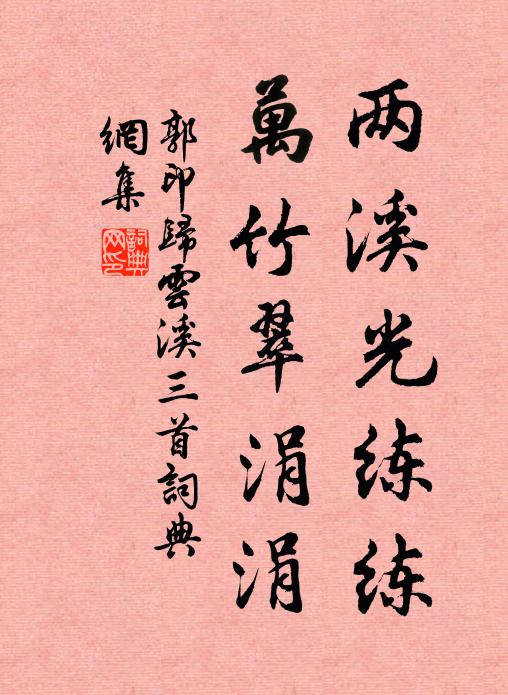 两溪光练练
萬竹翠涓涓
郭印歸雲溪三首詞典
網集
詞典网印